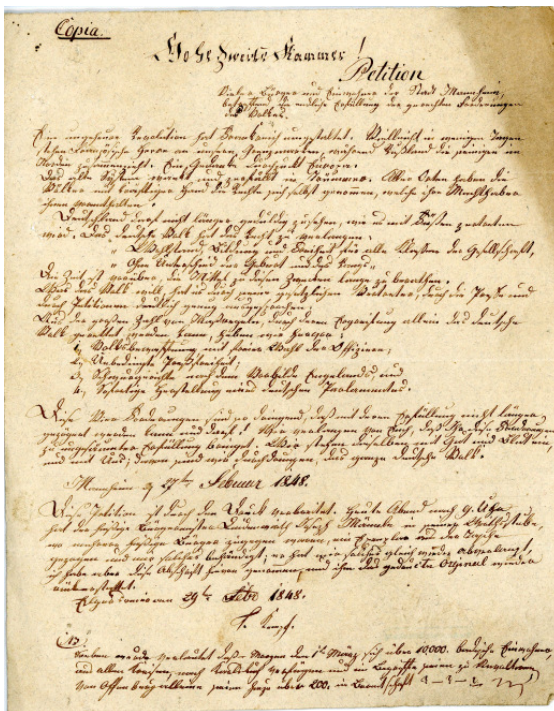 Copia.
Hohe zweite Kammer!
Petition
vieler Bürger und Einwohner der Stadt Mannheim,
betreffend die endliche Erfüllung der gerechten Forderungen
des Volkes.
Eine ungeheure Revolution hat Frankreich umgestaltet. Vielleicht in wenigen Tagen
stehen französische Heere an unseren Grenzmarken, während Rußland die seinigen im
Norden zusammenzieht. Ein Gedanke durchzuckt Europa.
Das alte System wankt und zerfällt in Trümmer. Aller Orten haben die
Völker mit kräftiger Hand die Rechte sich selbst genommen, welche ihre Machthaber
ihnen vorenthielten.
Deutschland darf nicht länger geduldig zusehen, wie es mit Füßen getreten
wird. Das deutsche Volk hat das Recht zu verlangen:
Wohlstand, Bildung und Freiheit für alle Klassen der Gesellschaft,
ohne Unterschied der Geburt und des Standes.
Die Zeit ist vorüber, die Mittel zu diesen Zwecken lange zu berathen.
Was das Volk will, hat es durch seine gesetzlichen Vertreter, durch die Presse und
durch Petitionen deutlich genug ausgesprochen.
Aus der großen Zahl von Maßregeln, durch deren Ergreifung allein das deutsche
Volk gerettet werden kann, heben wir hervor:
1, Volksbewaffnung mit freien Wahl der Offiziere,
2, Unbedingte Preßfreiheit,
3, Schwurgerichte nach dem Vorbilde Englands, und
4, Sofortige Herstellung eines deutschen Parlamentes.
Diese vier Forderungen sind so dringend, daß mit deren Erfüllung nicht länger
gezögert werden kann und darf! Wir verlangen von Euch, daß Ihr diese Forderungen
zu ungesäumter Erfüllung bringet. Wir stehen für dieselben mit Gut und Blut ein,
und mit uns, davon sind wir durchdrungen, das ganze deutsche Volk.
Mannheim 27ten Februar 1848.
Diese Petition ist durch den Druck verbreitet. Heute Abend nach 9 Uhr,
hat der hiesige Bürgermeister
wo mehrere hiesige Bürger zugegen waren, ein Exemplar aus der Tasche
gezogen und mir solches hat mir solches gleich wieder
ich habe aber diese Abschrift hievon genommen, und ihm das gedruckte Original wieder
29te Febr 1848.
Soeben wurde verlautet daß Morgen den 1ten März sich über 10,000. badische Einwohner
aus allen Kreisen, nach Karlsruh
Von Offenburg alleine seien hiezu über 200. in Bereitschaft